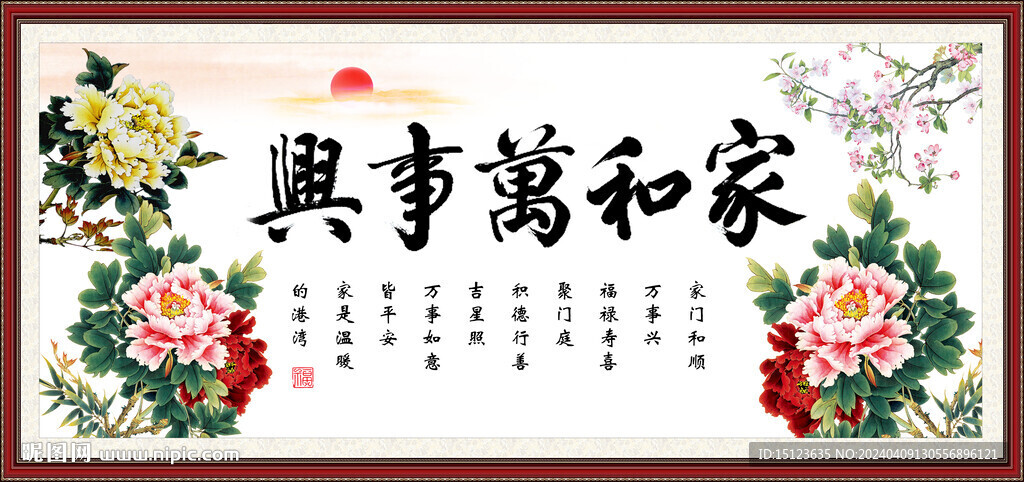 家和萬事興
家门和顺
万事兴
福禄寿喜
聚门庭
积德行善
吉星照
万事如意
皆平安
家是温暖
的港湾
福
昵图网 www.nipic.com
ID:15123635 NO:20240409130556896121